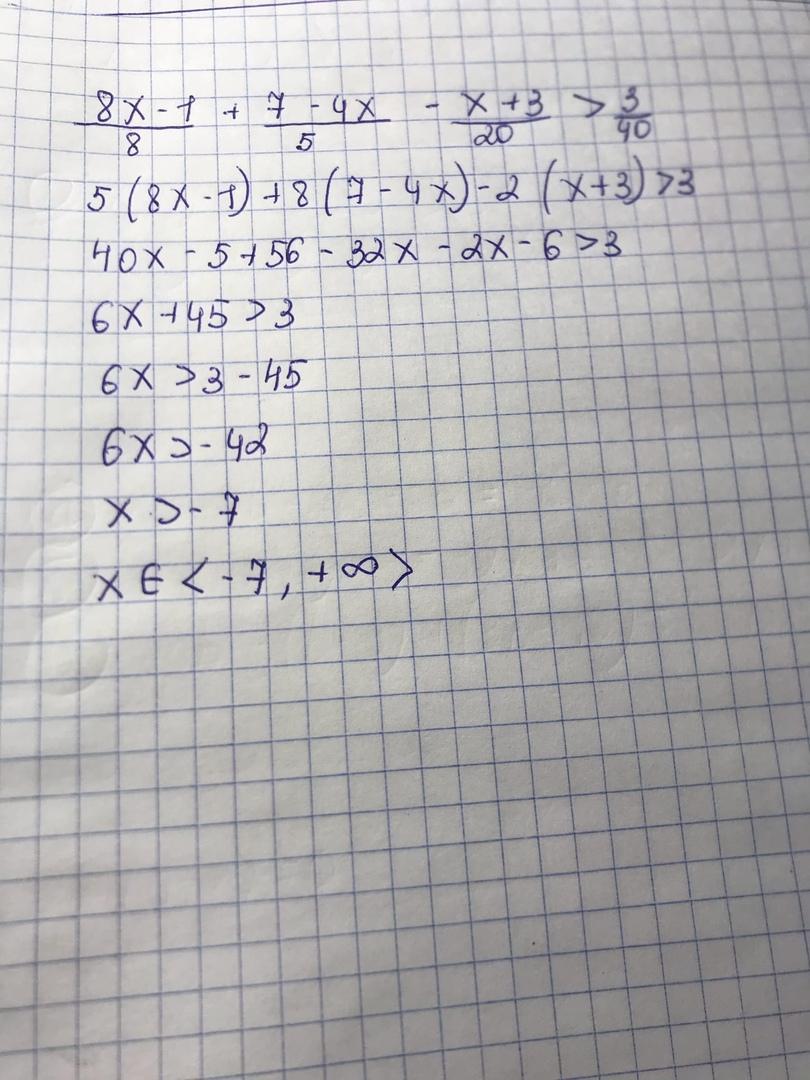 (8x-1)/8 + (7-4x)/5 - (x+3)/20 > 3/40
5(8x-1)+8(7-4x)-2(x+3)>3
40x-5+56-32x-2x-6>3
6x+45>3
6x>3-45
6x>-42
x>-7
x∈<-7,+∞>